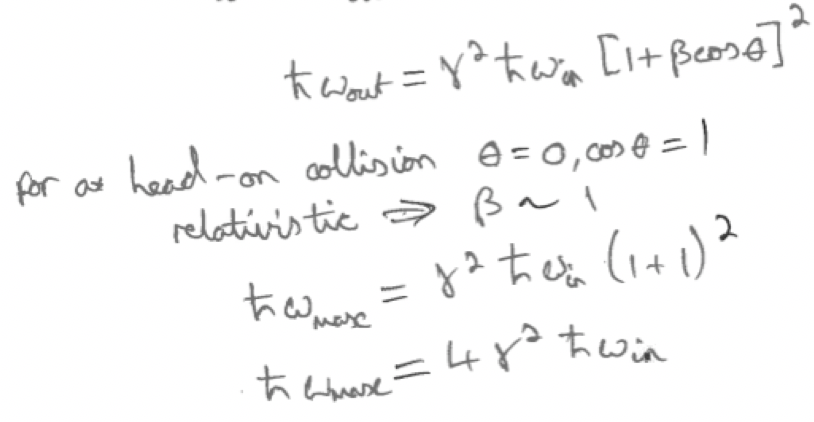 ħω_out = γ²ħω_in [1+βcosθ]²
for a head-on collision θ = 0, cosθ = 1
relativistic ⇒ β ~ 1
ħω_max = γ²ħω_in (1+1)²
ħω_max = 4γ²ħω_in